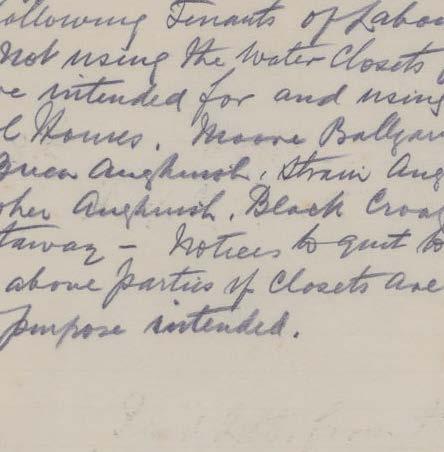 ollowing Tenants of Labo
Not using the Water Closets
re intended for and using
l Homes. Moore Ballyar
Aughnish, Strain Aug
oher Aughnish. Black Croag
taway - Notices to quit to
above parties if Closets are
purpose intended.